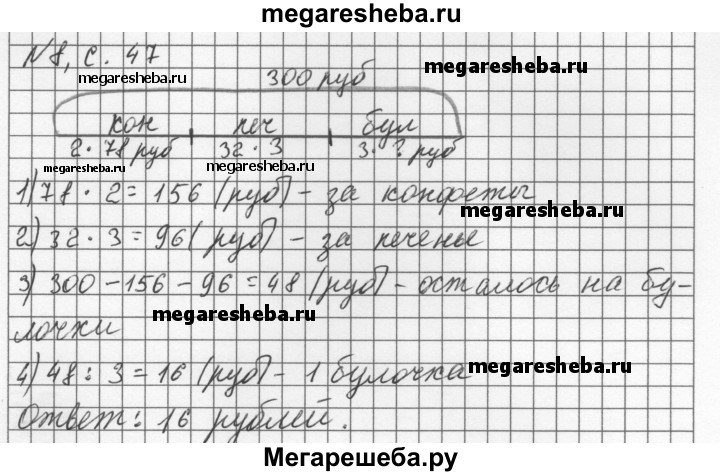 megaresheba.ru
№8, с. 47
megaresheba.ru
megaresheba.ru
300 руб
кон печ бул
2 · 78 руб 32 · 3 3 · ? руб
megaresheba.ru
megaresheba.ru
1) 78 · 2 = 156 (руб) - за конфеты
megaresheba.ru
2) 32 · 3 = 96 (руб) - за печенье
3) 300 - 156 - 96 = 48 (руб) - осталось на бу-
megaresheba.ru
лочки
4) 48 : 3 = 16 (руб) - 1 булочка
megaresheba.ru
Ответ: 16 рублей.
Мегарешеба.ру